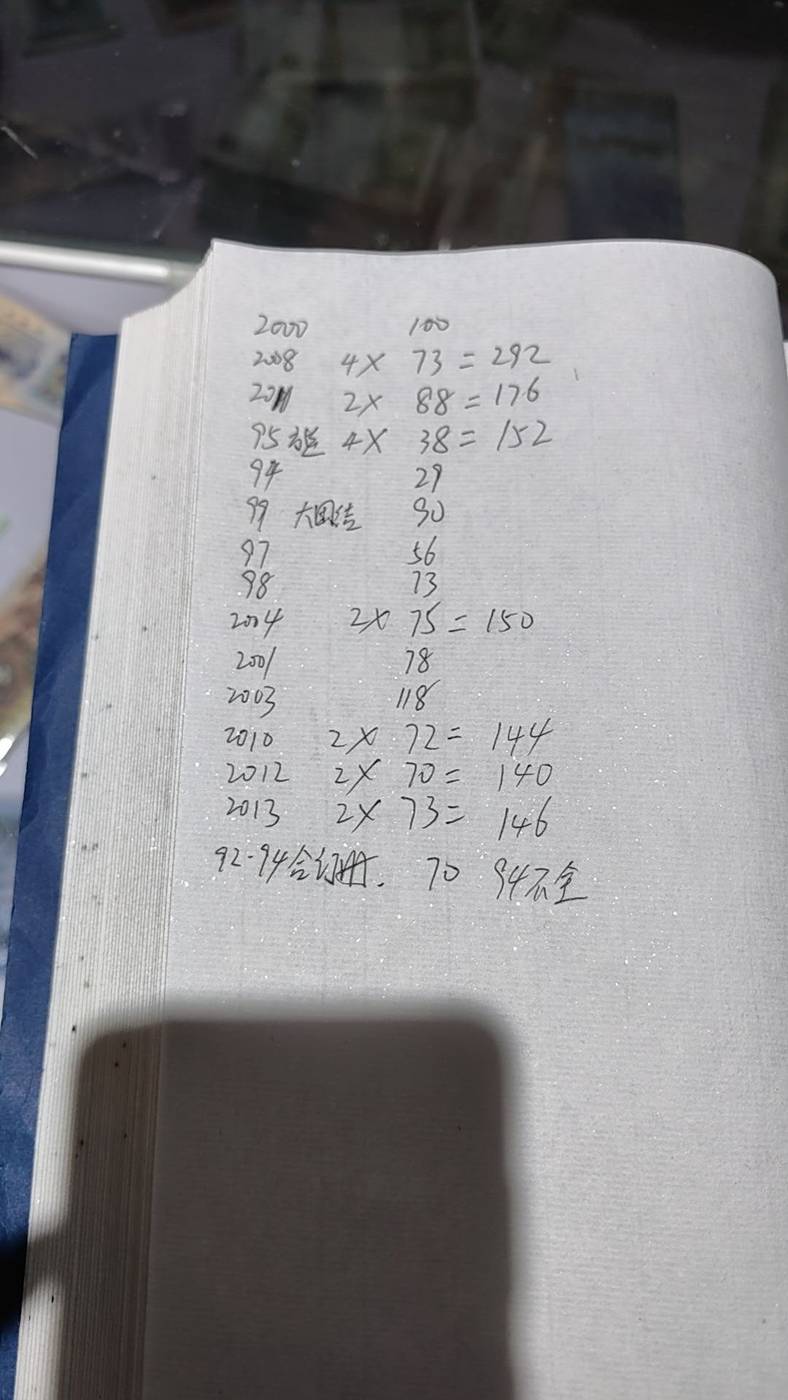 2000 100
2008 4× 73=292
2011 2× 88=176
95 4× 38=152
94 29
99 大团结 90
97 56
98 73
2004 2× 75=150
2001 78
2003 118
2010 2× 72= 144
2012 2× 70= 140
2013 2× 73= 146
92-94合订册. 70 94不全